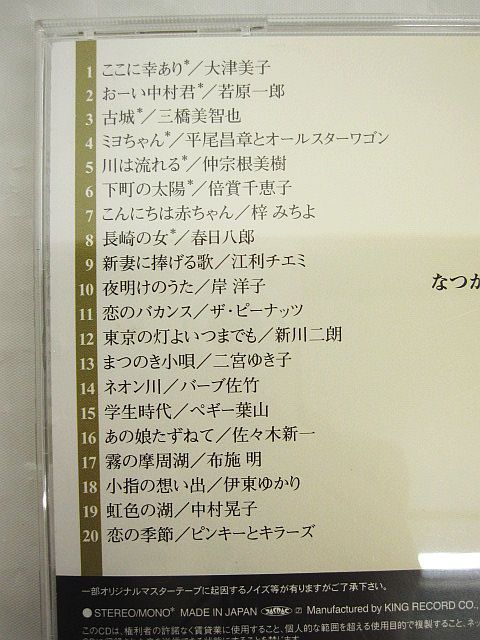 1 ここに幸あり*／大津美子
2 おーい中村君*／若原一郎
3 古城*／三橋美智也
4 ミヨちゃん*／平尾昌章とオールスターワゴン
5 川は流れる*／仲宗根美樹
6 下町の太陽*／倍賞千恵子
7 こんにちは赤ちゃん／梓 みちよ
8 長崎の女*／春日八郎
9 新妻に捧げる歌／江利チエミ
10 夜明けのうた／岸 洋子
なつか
11 恋のバカンス／ザ・ピーナッツ
12 東京の灯よいつまでも／新川二朗
13 まつのき小唄／二宮ゆき子
14 ネオン川／バーブ佐竹
15 学生時代／ペギー葉山
16 あの娘たずねて／佐々木新一
17 霧の摩周湖／布施 明
18 小指の想い出／伊東ゆかり
19 虹色の湖／中村晃子
20 恋の季節／ピンキーとキラーズ
一部オリジナルマスターテープに起因するノイズ等が有りますがご了承下さい。
●STEREO/MONO* MADE IN JAPAN Manufactured by KING RECORD CO.,
このCDは、権利者の許諾なく賃貸業に使用すること、個人的な範囲を超える使用目的で複製すること、